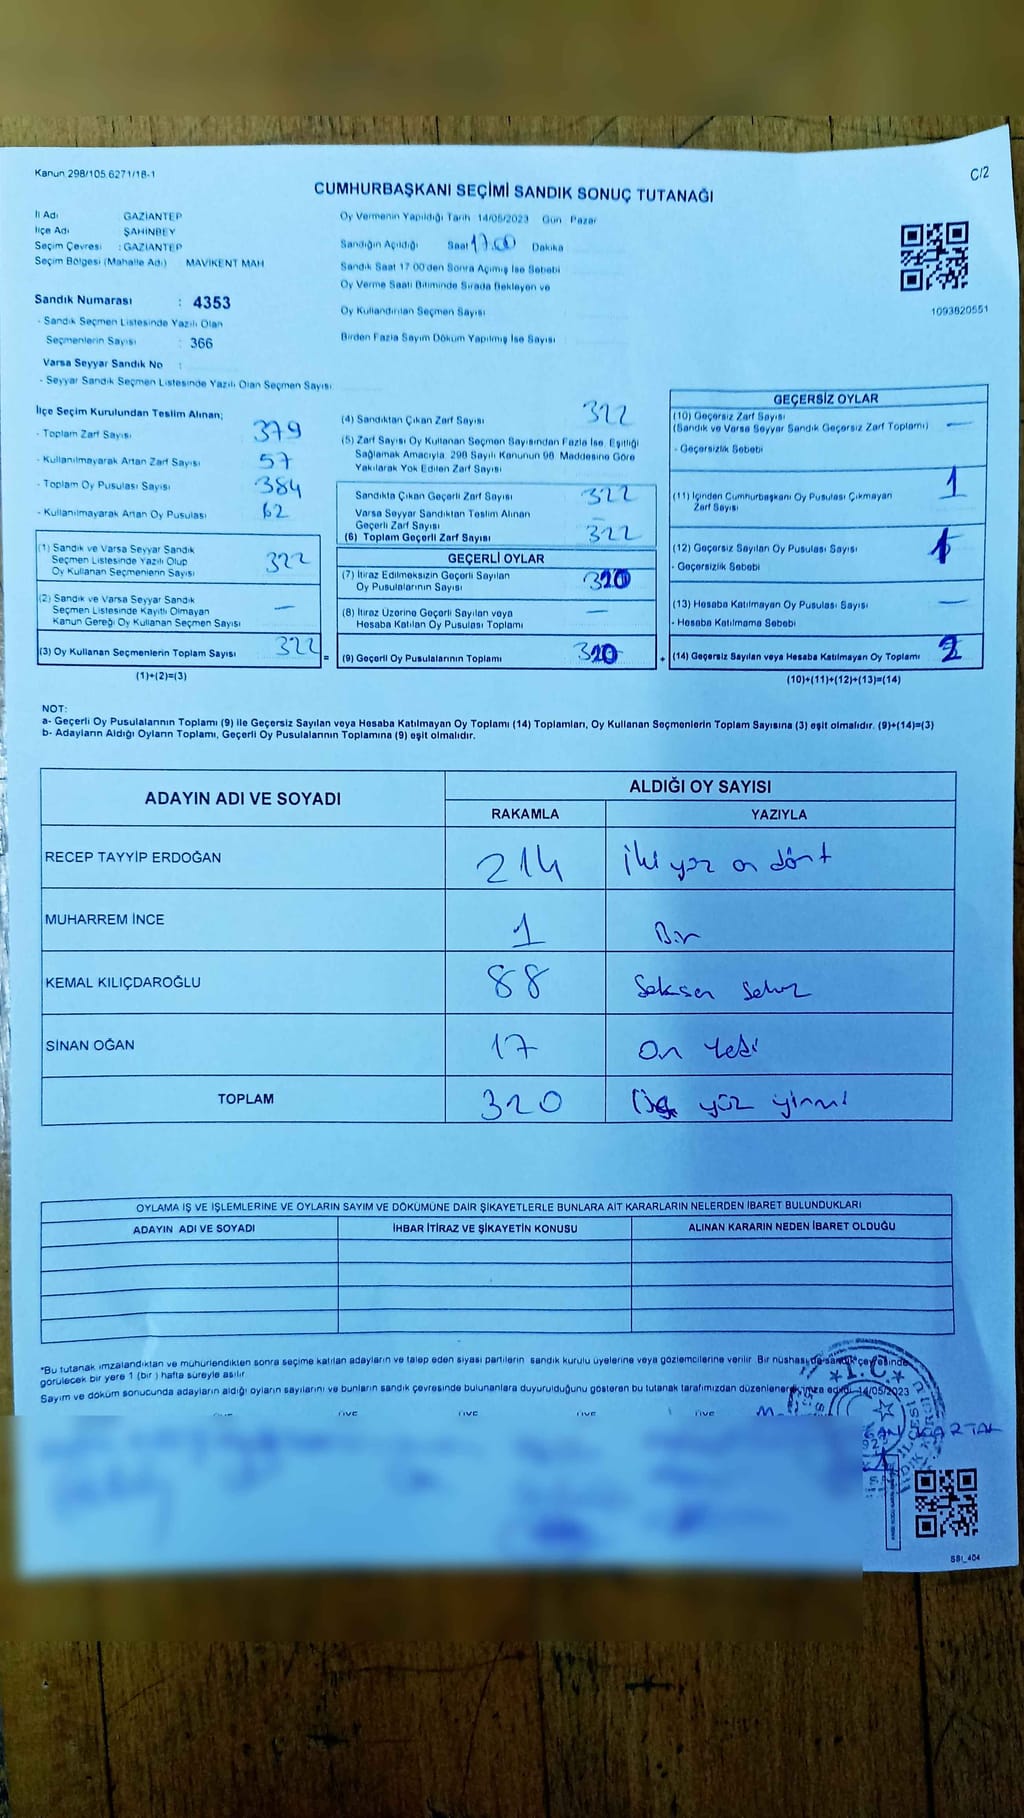 Kanun 298/105 6271/18-1
C/2
CUMHURBAŞKANI SEÇİMİ SANDIK SONUÇ TUTANAĞI
İl Adı GAZİANTEP
İlçe Adı ŞAHİNBEY
Seçim Çevresi : GAZİANTEP
Seçim Bölgesi (Mahalle Adı) MAVİKENT MAH
Oy Vermenin Yapıldığı Tarih 14/05/2023 Gün Pazar
Sandığın Açıldığı Saat 17.00 Dakika
Sandık Saat 17 00'den Sonra Açımış İse Sebebi
Oy Verme Saati Bitiminde Sırada Bekleyen ve
Oy Kullandırılan Seçmen Sayısı
Birden Fazla Sayım Döküm Yapılmış İse Sayısı
1093820551
Sandık Numarası : 4353
- Sandık Seçmen Listesinde Yazılı Olan
Seçmenlerin Sayısı : 366
Varsa Seyyar Sandık No :
- Seyyar Sandık Seçmen Listesinde Yazılı Olan Seçmen Sayısı
İlçe Seçim Kurulundan Teslim Alınan;
- Toplam Zarf Sayısı 379
- Kullanılmayarak Artan Zarf Sayısı 57
- Toplam Oy Pusulası Sayısı 384
- Kullanılmayarak Artan Oy Pusulası 62
(1) Sandık ve Varsa Seyyar Sandık
Seçmen Listesinde Yazılı Olup
Oy Kullanan Seçmenlerin Sayısı 322
(2) Sandık ve Varsa Seyyar Sandık
Seçmen Listesinde Kayıtlı Olmayan
Kanun Gereği Oy Kullanan Seçmen Sayısı —
(3) Oy Kullanan Seçmenlerin Toplam Sayısı 322
(1)+(2)=(3)
(4) Sandıktan Çıkan Zarf Sayısı 322
(5) Zarf Sayısı Oy Kullanan Seçmen Sayısından Fazla İse, Eşitliği
Sağlamak Amacıyla 298 Sayılı Kanunun 98 Maddesine Göre
Yakılarak Yok Edilen Zarf Sayısı
Sandıkta Çıkan Geçerli Zarf Sayısı 322
Varsa Seyyar Sandıktan Teslim Alınan
Geçerli Zarf Sayısı —
(6) Toplam Geçerli Zarf Sayısı 322
GEÇERLİ OYLAR
(7) İtiraz Edilmeksizin Geçerli Sayılan
Oy Pusulalarının Sayısı 320
(8) İtiraz Üzerine Geçerli Sayılan veya
Hesaba Katılan Oy Pusulası Toplamı —
= (9) Geçerli Oy Pusulalarının Toplamı 320
GEÇERSİZ OYLAR
(10) Geçersiz Zarf Sayısı
(Sandık ve Varsa Seyyar Sandık Geçersiz Zarf Toplamı) —
- Geçersizlik Sebebi
(11) İçinden Cumhurbaşkanı Oy Pusulası Çıkmayan
Zarf Sayısı 1
(12) Geçersiz Sayılan Oy Pusulası Sayısı 1
- Geçersizlik Sebebi
(13) Hesaba Katılmayan Oy Pusulası Sayısı —
- Hesaba Katılmama Sebebi
+ (14) Geçersiz Sayılan veya Hesaba Katılmayan Oy Toplamı 2
(10)+(11)+(12)+(13)=(14)
NOT:
a- Geçerli Oy Pusulalarının Toplamı (9) ile Geçersiz Sayılan veya Hesaba Katılmayan Oy Toplamı (14) Toplamları, Oy Kullanan Seçmenlerin Toplam Sayısına (3) eşit olmalıdır. (9)+(14)=(3)
b- Adayların Aldığı Oyların Toplamı, Geçerli Oy Pusulalarının Toplamına (9) eşit olmalıdır.
ADAYIN ADI VE SOYADI
ALDIĞI OY SAYISI
RAKAMLA YAZIYLA
RECEP TAYYİP ERDOĞAN 214 İki yüz on dört
MUHARREM İNCE 1 Bir
KEMAL KILIÇDAROĞLU 88 Seksen sekiz
SİNAN OĞAN 17 On yedi
TOPLAM 320 Üç yüz yirmi
OYLAMA İŞ VE İŞLEMLERİNE VE OYLARIN SAYIM VE DÖKÜMÜNE DAİR ŞİKAYETLERLE BUNLARA AİT KARARLARIN NELERDEN İBARET BULUNDUKLARI
ADAYIN ADI VE SOYADI İHBAR İTİRAZ VE ŞİKAYETİN KONUSU ALINAN KARARIN NEDEN İBARET OLDUĞU
*Bu tutanak imzalandıktan ve mühürlendikten sonra seçime katılan adayların ve talep eden siyasi partilerin sandık kurulu üyelerine veya gözlemcilerine verilir Bir nüshası da sandık çevresinde
görülecek bir yere 1 (bir) hafta süreyle asılır
Sayım ve döküm sonucunda adayların aldığı oyların sayılarını ve bunların sandık çevresinde bulunanlara duyurulduğunu gösteren bu tutanak tarafımızdan düzenlenerek imza edildi 14/05/2023
T.C.
KARTAL
SBI_404